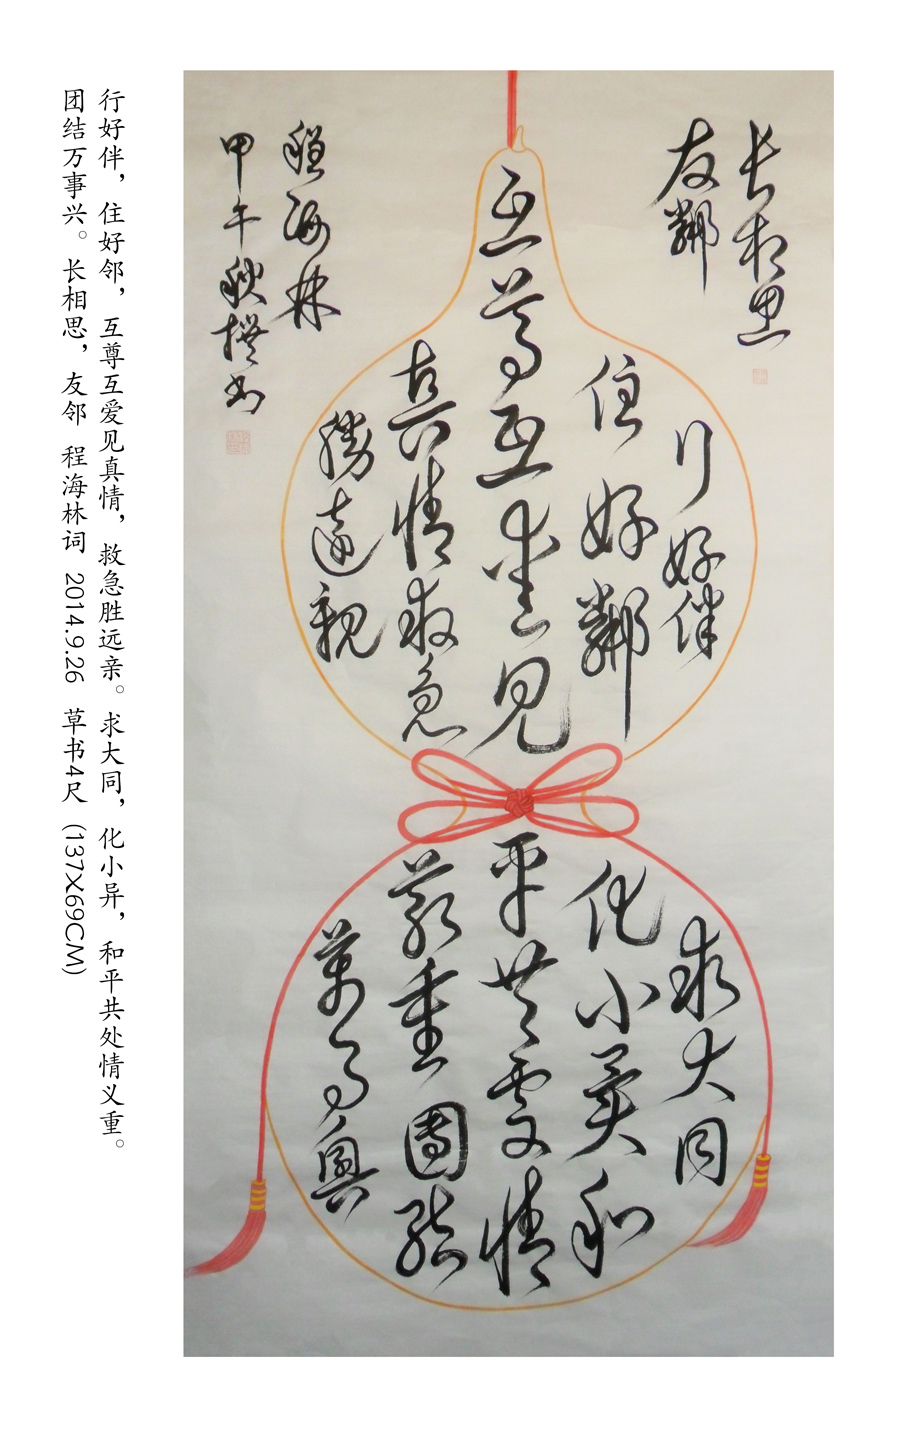 長相思
友鄰
行好伴
住好鄰
互尊互愛見
真情救急
勝遠親
求大同
化小異和
平共處情
義重團結
萬事興
程海林
甲午秋撰书
行好伴，住好邻，互尊互爱见真情，救急胜远亲。求大同，化小异，和平共处情义重。
团结万事兴。长相思，友邻 程海林词 2014.9.26 草书4尺 (137X69CM)